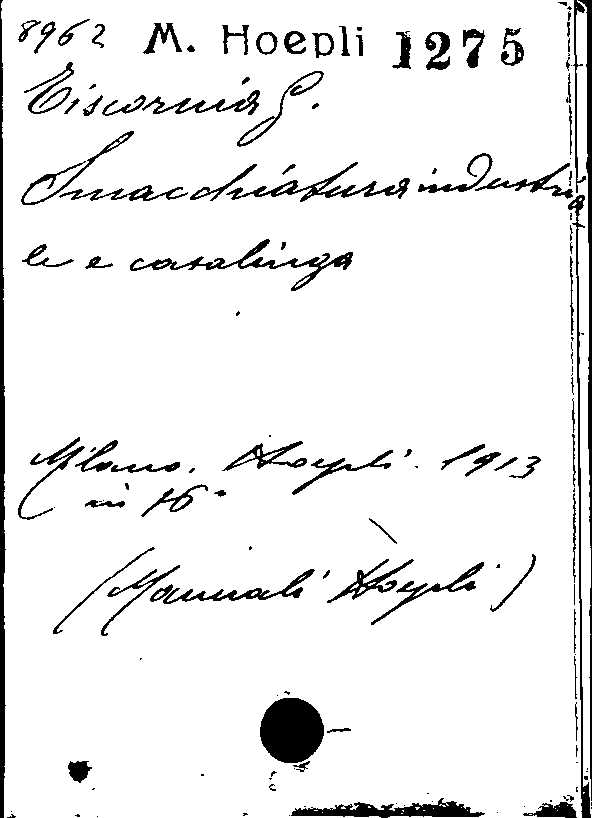 8962 M. Hoepli 1275
Tiscornia G.
Smacchiatura industria
le e casalinga
Milano. Hoepli. 1913
in 16°
(Manuali Hoepli)